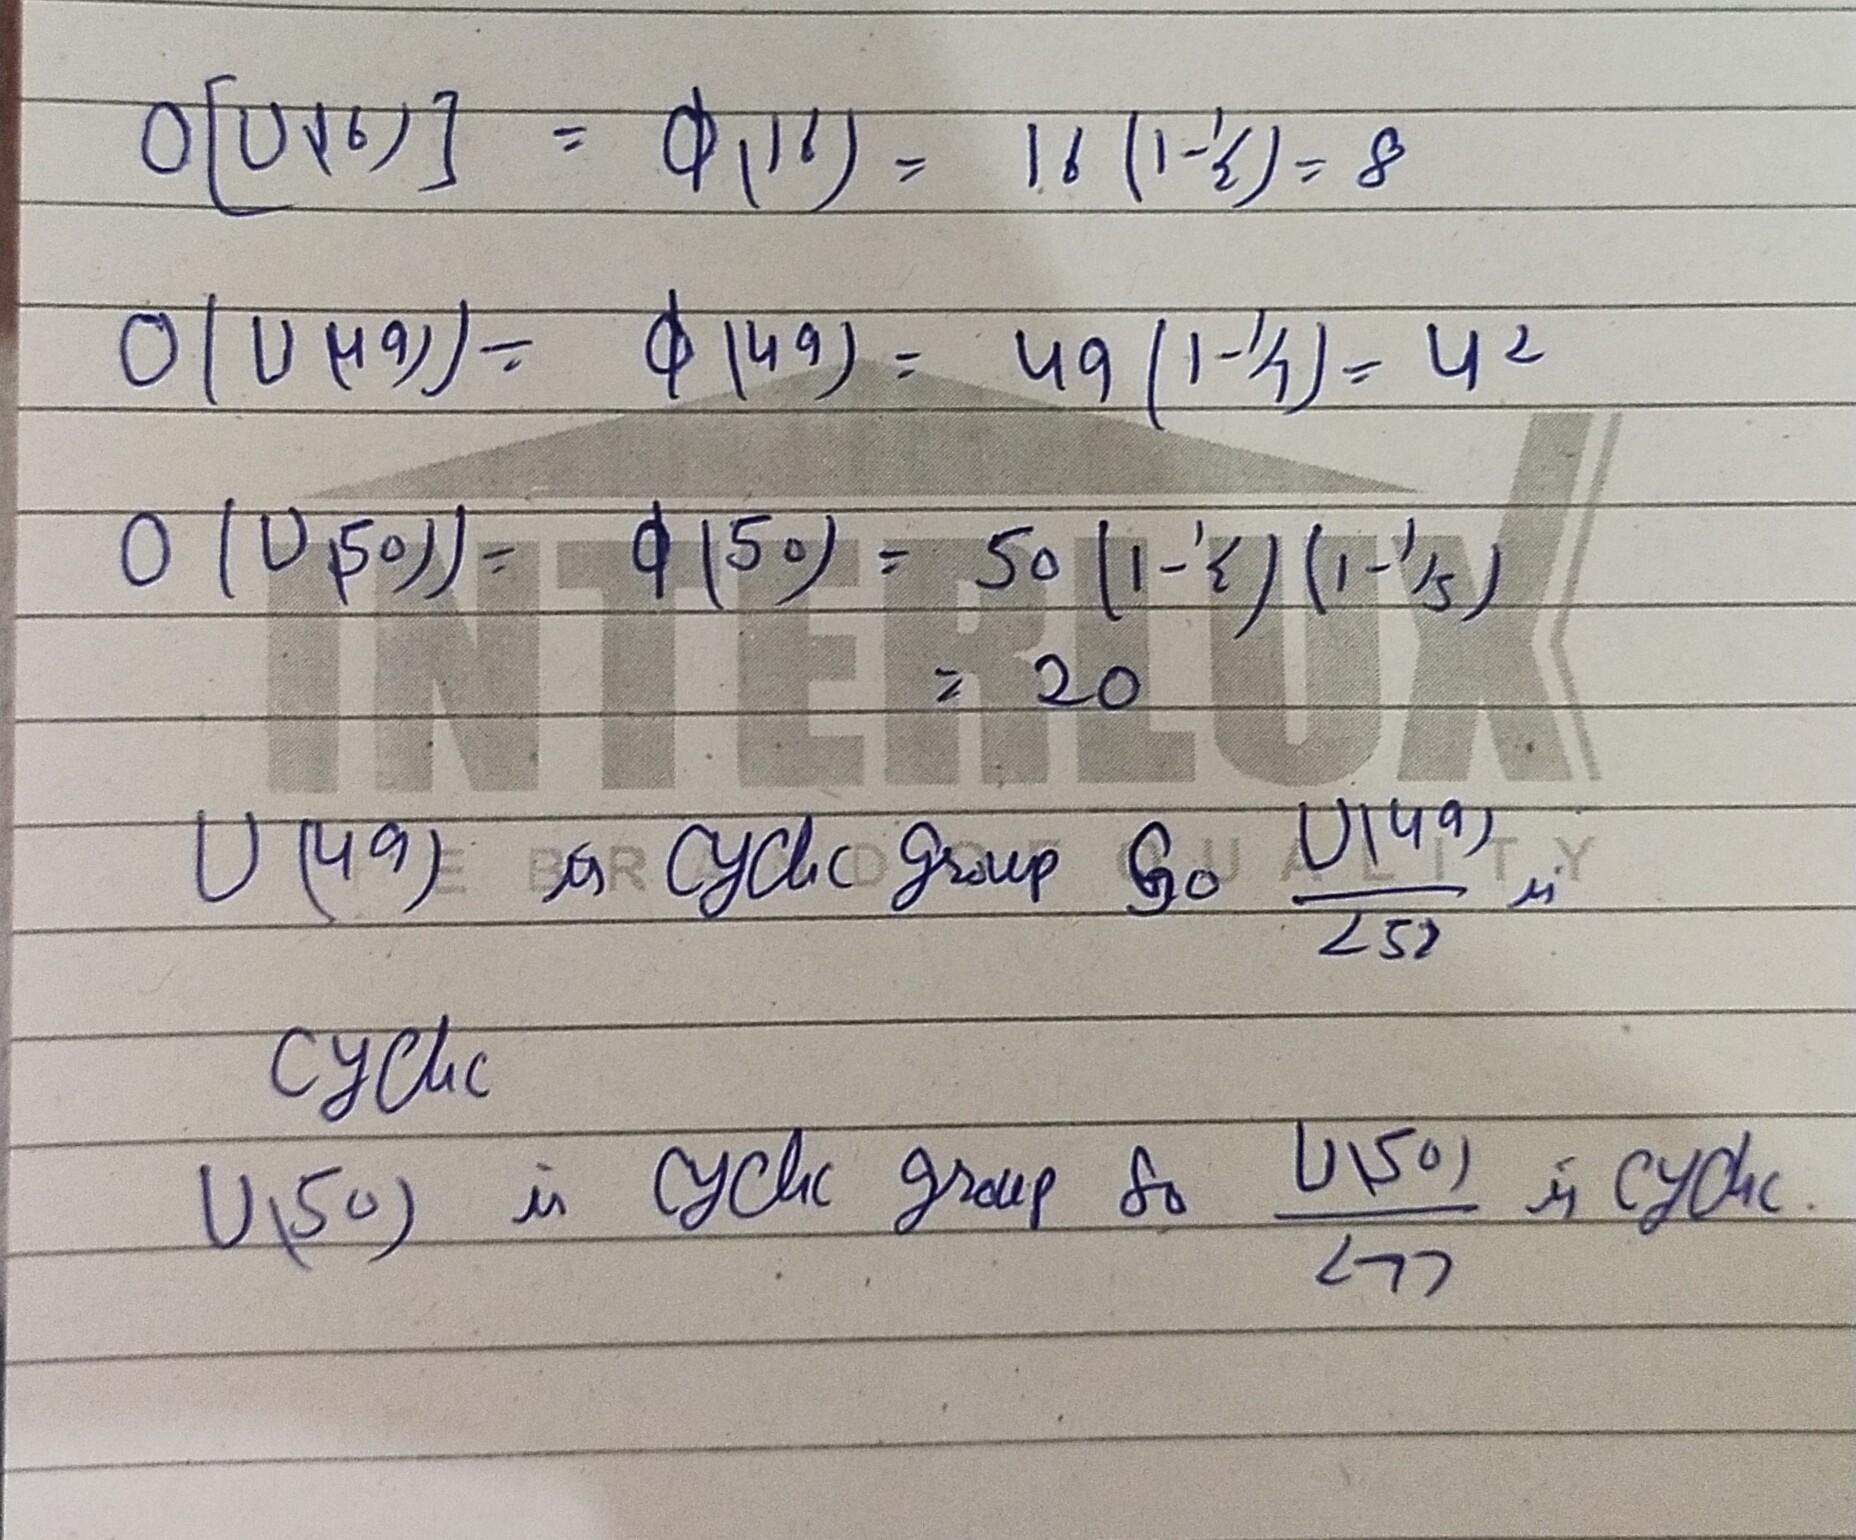 O[U(16)] = φ(16) = 16(1-1/2) = 8
O(U(49)) = φ(49) = 49(1-1/7) = 42
O(U(50)) = φ(50) = 50(1-1/2)(1-1/5)
= 20
INTERLUX
U(49) is cyclic group so U(49)/<5> is
cyclic
U(50) is cyclic group so U(50)/<7> is cyclic.